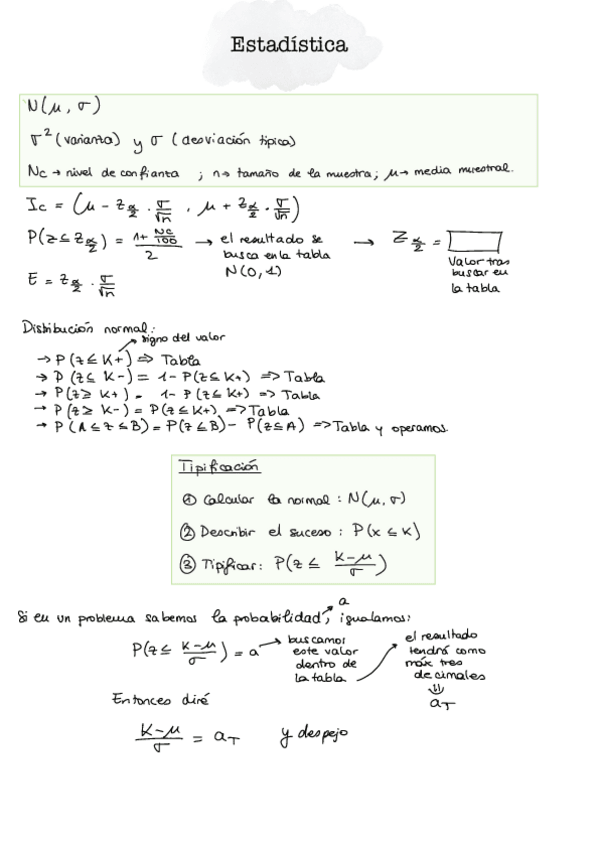 Estadística
N(μ, σ)
σ² (varianza) y σ (desviación típica)
Nc → nivel de confianza ; n → tamaño de la muestra ; μ → media muestral.
Ic = (μ - z α/2 · σ/√n , μ + z α/2 · σ/√n)
P(z ≤ z α/2) = (1 + Nc/100)/2 → el resultado se busca en la tabla N(0,1) → z α/2 = Valor tras buscar en la tabla
E = z α/2 · σ/√n
Distribución normal:
signo del valor
→ P(z ≤ K+) => Tabla
→ P(z ≤ K-) = 1 - P(z ≤ K+) => Tabla
→ P(z ≥ K+) = 1 - P(z ≤ K+) => Tabla
→ P(z ≥ K-) = P(z ≤ K+) => Tabla
→ P(A ≤ z ≤ B) = P(z ≤ B) - P(z ≤ A) => Tabla y operamos.
Tipificación
① Calcular la normal : N(μ, σ)
② Describir el suceso : P(x ≤ K)
③ Tipificar : P(z ≤ (K-μ)/σ)
a
Si en un problema sabemos la probabilidad, igualamos:
P(z ≤ (K-μ)/σ) = a → buscamos este valor dentro de la tabla → el resultado tendrá como máx tres decimales ⇓ aT
Entonces diré
(K-μ)/σ = aT y despejo